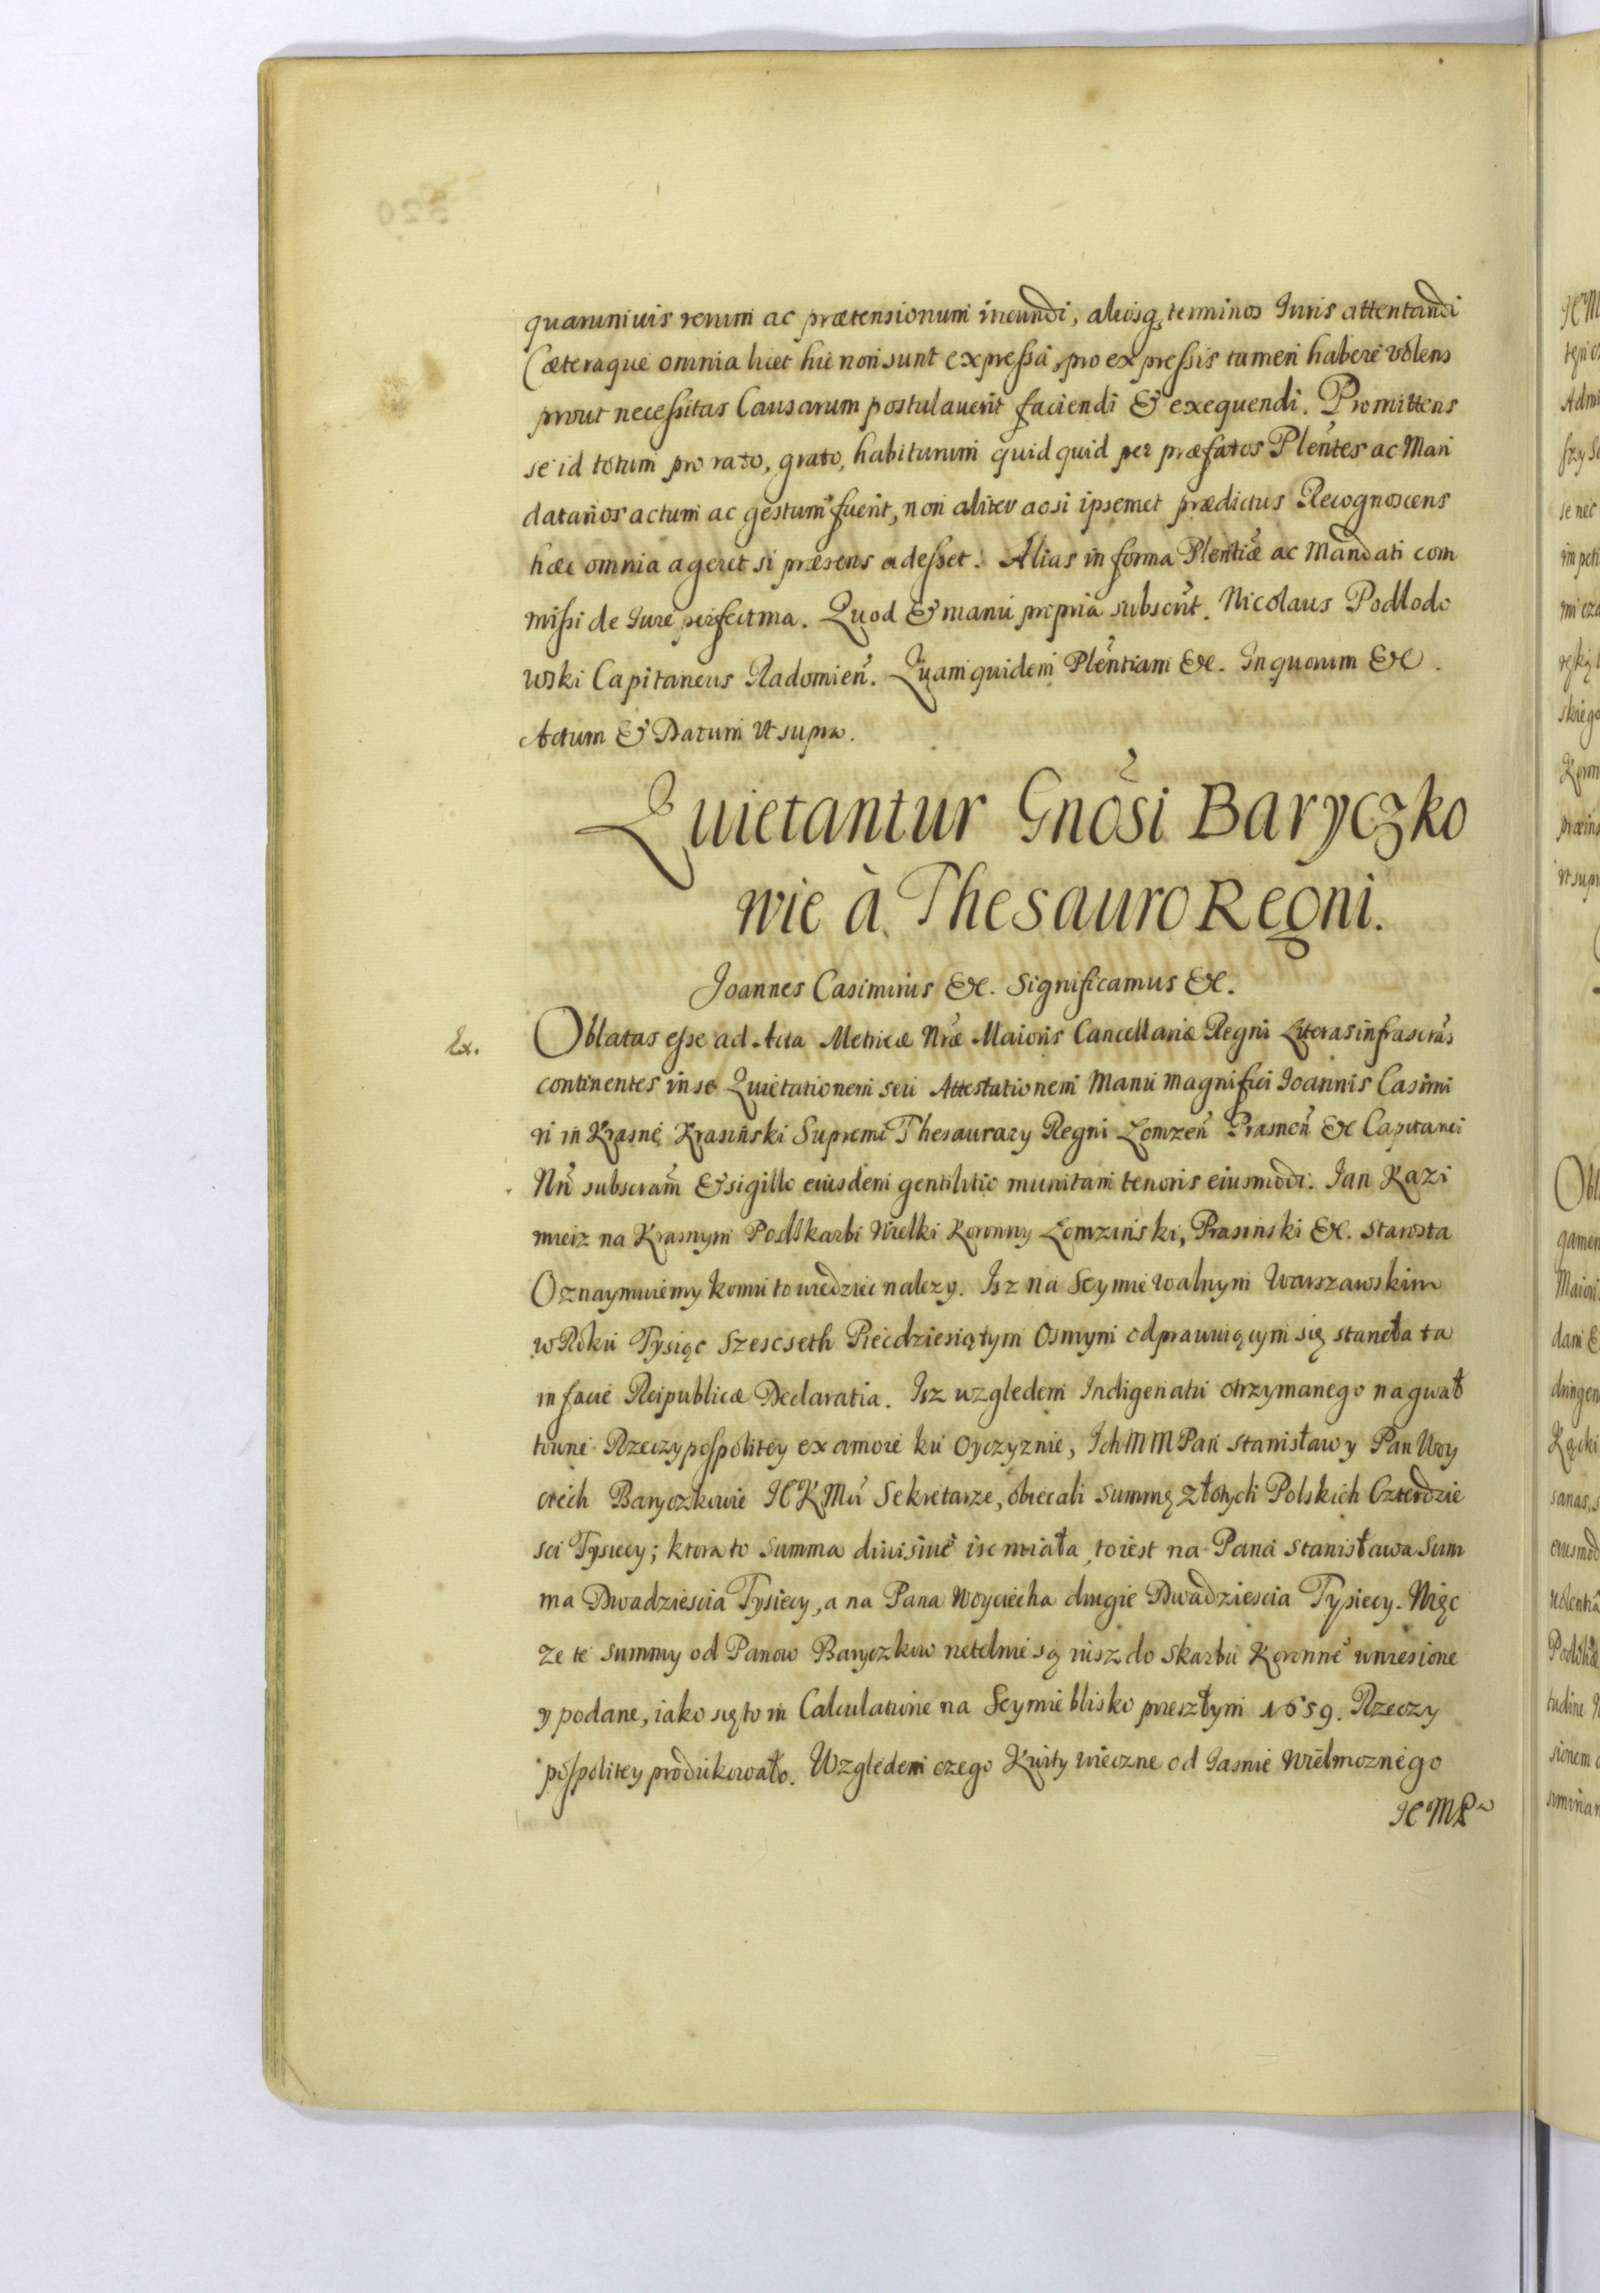 quarumvis rerum ac prætensionum ineundi, aliosq, terminos Iuris attentandi
Cæteraque omnia licet hic non sunt expressa, pro expressis tamen habere volens
prout necessitas Causarum postulaverit faciendi & exequendi. Promittens
se id totum pro rato, grato, habiturum quid quid per præfatos Plentes ac Man
datarios actum ac gestum fuerit, non aliter acsi ipsemet prædictus Recognoscens
hæc omnia ageret si præsens adesset. Alias in forma Plentiæ ac Mandati com
missi de Iure perfectma. Quod & manu propria subscrit. Nicolaus Podlodo
wski Capitaneus Radomien. Quam quidem Plentiam &c. In quorum &c.
Actum & Datum ut supra.
Quietantur Gnosi Baryczko
wie à Thesauro Regni.
Joannes Casimirus &c. Significamus &c.
Ex. Oblatas esse ad Acta Metricæ Nræ Maioris Cancellariæ Regni Literas infrascras
continentes in se Quietationem seu Attestationem Manu Magnifici Joannis Casimi
ri in Krasne Krasiński Supremi Thesaurary Regni Lomzen Prasnen &c Capitanei
Nri subscram & sigillo eiusdem gentilitio munitam tenoris eiusmodi. Jan Kazi
mierz na Krasnym Podskarbi Wielki Koronny Lomzinski, Prasinski &c. Starosta
Oznaymuiemy komu to wiedziec nalezy. Isz na Seymie walnym Warszawskim
w Roku Tysiąc Szescseth Piecdziesiątym Osmym odprawuiącym się staneła ta
in facie Reipublicæ Declaratia. Isz względem Indigenatu otrzymanego na gwał
towne Rzeczypospolitey ex amore ku Oyczyznie, Ich MM Pan Stanisław y Pan Woy
ciech Baryczkowie JEKMci Sekretarze, obiecali Summę złotych Polskich Czterdzie
sci Tysiecy; ktora to Summa divisive isc miała, to iest na Pana Stanisława Sum
ma Dwadziescia Tysiecy, a na Pana Woyciecha drugie Dwadziescia Tysiecy. Więc
ze te summy od Panow Baryczkow zetelnie są iusz do Skarbu Koronne wniesione
y podane, iako się to in Calculatione na Seymie blisko przeszłym 1659. Rzeczy
pospolitey produkowało. Względem czego Kwity wieczne od Jasnie Wielmoznego